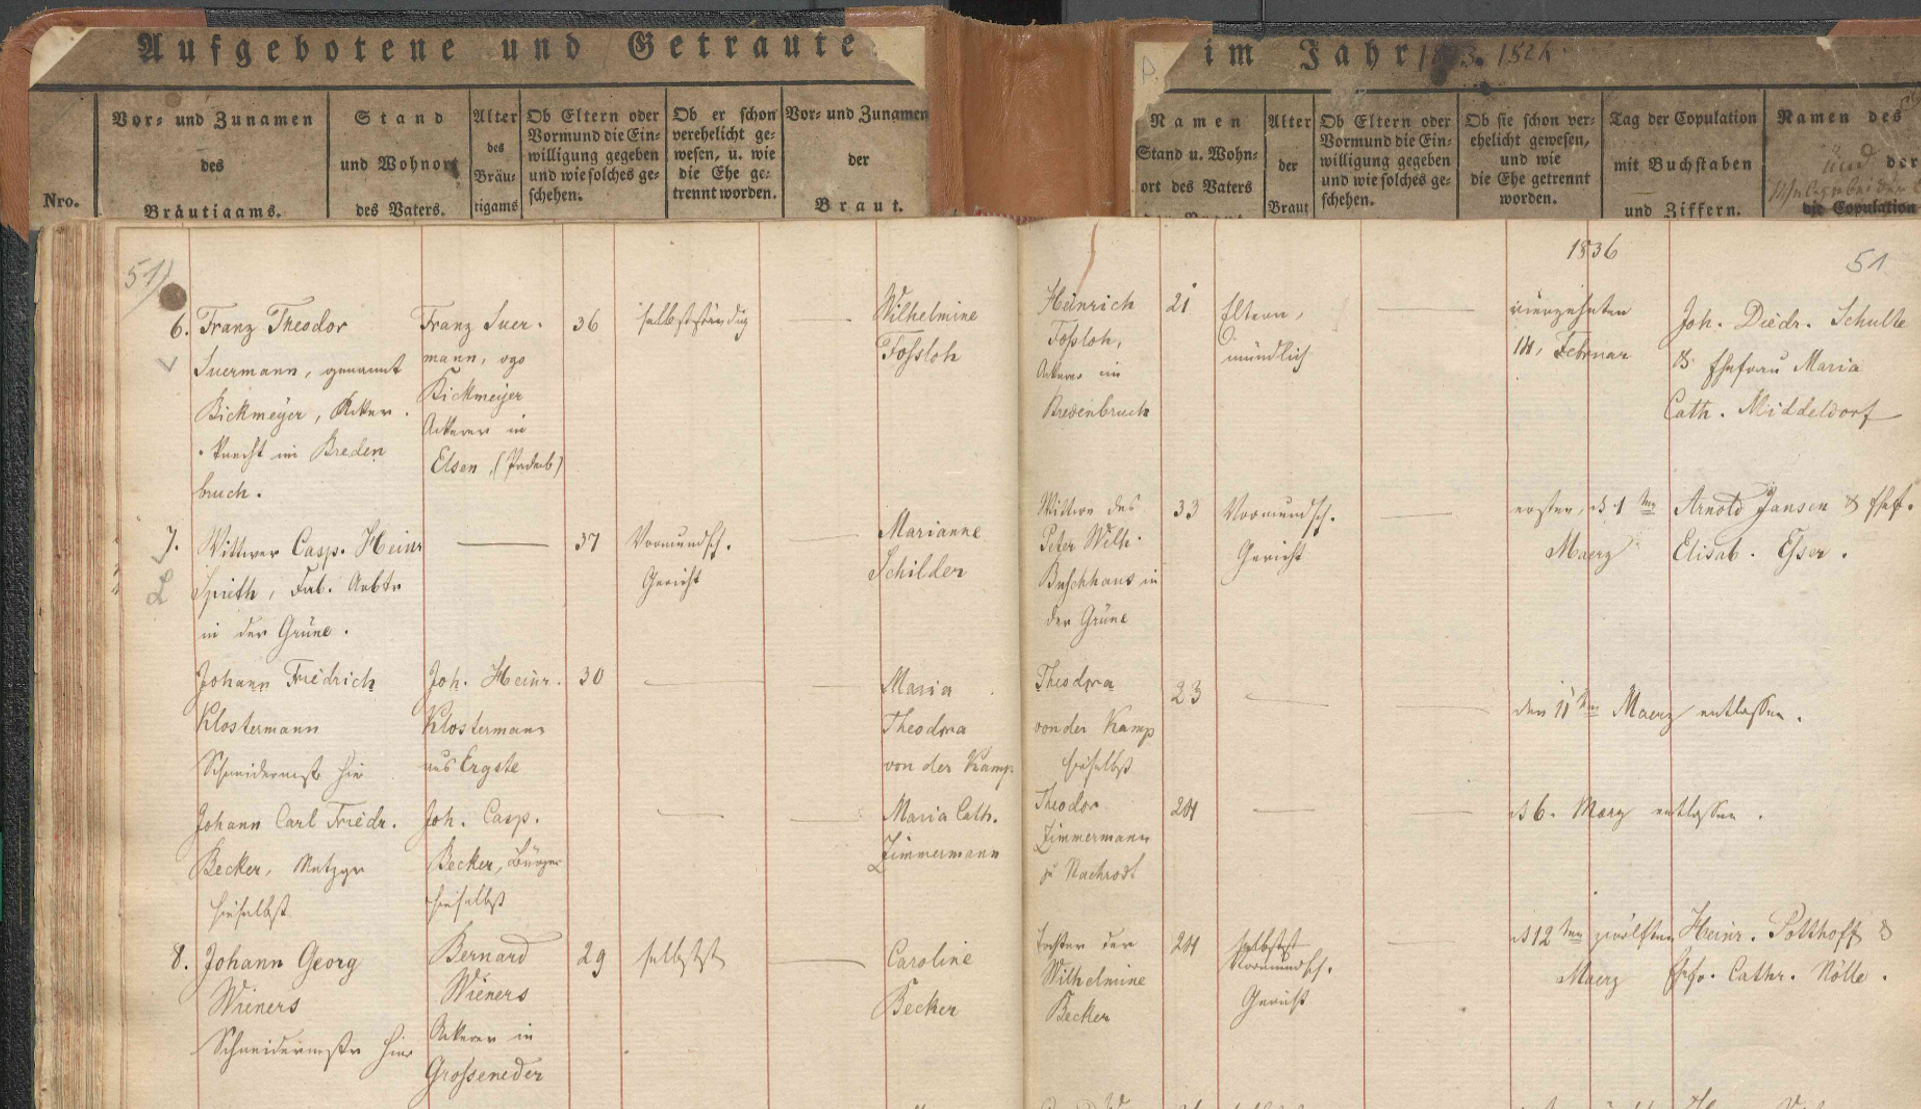 Aufgebotene und Getraute
im Jahr 1824.
Nro.
Vor- und Zunamen
des
Bräutigams.
Stand
und Wohnort
des Vaters.
Alter
des
Bräu-
tigams
Ob Eltern oder
Vormund die Ein-
willigung gegeben
und wie solches ge-
schehen.
Ob er schon
verehelicht ge-
wesen, u. wie
die Ehe ge-
trennt worden.
Vor- und Zunamen
der
Braut.
Namen
Stand u. Wohn-
ort des Vaters
der Braut
Alter
der
Braut
Ob Eltern oder
Vormund die Ein-
willigung gegeben
und wie solches ge-
schehen.
Ob sie schon ver-
ehelicht gewesen,
und wie
die Ehe getrennt
worden.
Tag der Copulation
mit Buchstaben
und Ziffern.
Namen des
und der
die Copulation
51)
1836
51
6.
Franz Theodor
Suermann, genannt
Bickmeyer, Acker
knecht im Breden
bruch.
Franz Suer-
mann, vgo
Bickmeijer
Ackerer in
Elsen, (Paderb)
36
selbstständig
Wilhelmine
Fossloh
Heinrich
Fossloh,
Ackerer im
Bredenbruch
21
Eltern,
mündlich
vierzehnten
14, Februar
Joh. Diedr. Schulte
& Ehefrau Maria
Cath. Middeldorf
7.
Wittwer Casp. Heinr
Spieth, Fab. Arbtr
in der Grüne.
37
Vormundsch.
Gericht
Marianne
Schilden
Wittwe des
Peter Wilh.
Buschhaus in
der Grüne
33
Vormundsch.
Gericht
ersten, d. 1ten
Maerz
Arnold Jansen & Ehef.
Elisab. Esser.
Johann Friedrich
Klostermann
Schneidermstr hier
Joh. Heinr.
Klostermann
aus Ergste
30
Maria
Theodora
von der Kamp
Theodora
von der Kamp
hieselbst
23
den 11ten Maerz entlassen.
Johann Carl Friedr.
Becker, Metzger
hieselbst
Joh. Casp.
Becker, Bürger
hieselbst
Maria Cath.
Zimmermann
Theodor
Zimmermann
zu Nachrodt
24
d 6. Maerz entlassen.
8.
Johann Georg
Wieners
Schneidermstr hier
Bernard
Wieners
Ackerer in
Grosseneder
29
selbstst
Caroline
Becker
Tochter der
Wilhelmine
Becker
24
selbstst
Vormundsch.
Gericht
d 12ten zwölften
Maerz
Heinr. Potthoff &
Ehefr. Cathr. Nölle.